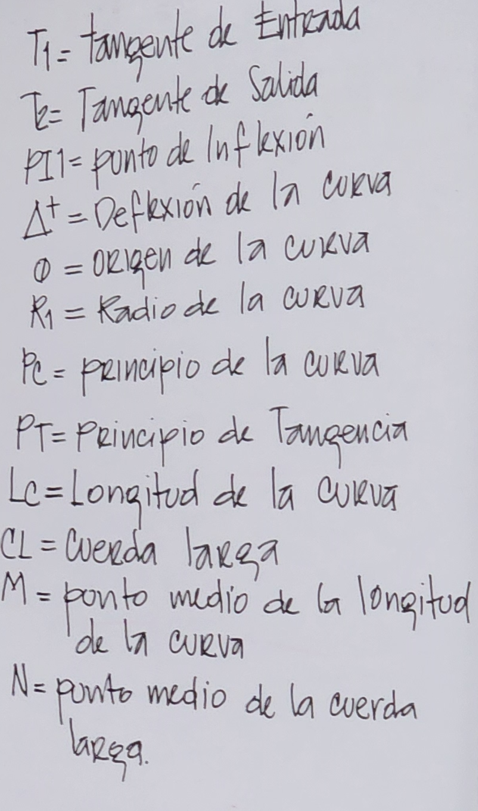 T1= tangente de Entrada
T2= Tangente de Salida
PI1= punto de Inflexión
Δ+ = Deflexión de la curva
O = origen de la curva
R1 = Radio de la curva
PC = principio de la curva
PT= Principio de Tangencia
LC = Longitud de la curva
CL = Cuerda larga
M = punto medio de la longitud
de la curva
N= punto medio de la cuerda
larga.